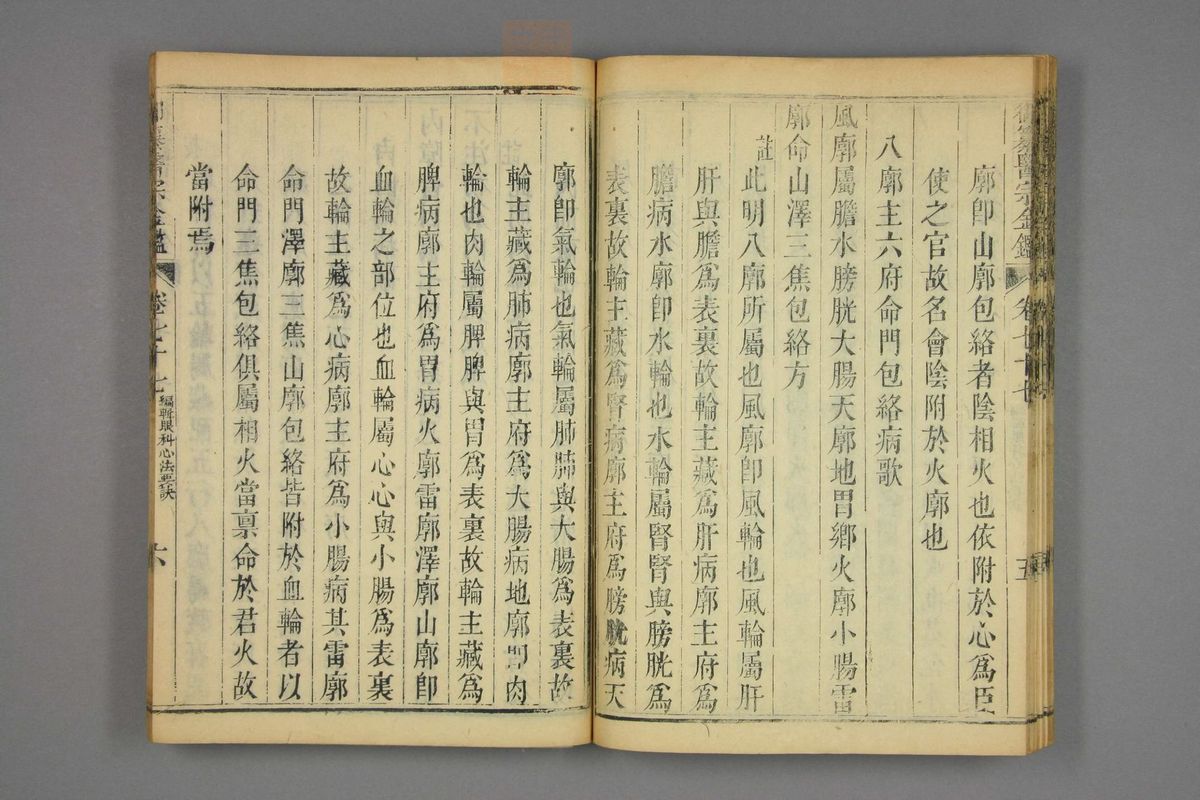 御纂醫宗金鑑 卷七十七 五
廓卽山廓包絡者陰相火也依附於心爲臣
使之官故名會陰附於火廓也
八廓主六府命門包絡病歌
風廓屬膽水膀胱大腸天廓地胃鄉火廓小腸雷
廓命山澤三焦包絡方
註此明八廓所屬也風廓卽風輪也風輪屬肝
肝與膽爲表裏故輪主藏爲肝病廓主府爲
膽病水廓卽水輪也水輪屬腎腎與膀胱爲
表裏故輪主藏爲腎病廓主府爲膀胱病天
廓卽氣輪也氣輪屬肺肺與大腸爲表裏故
輪主藏爲肺病廓主府爲大腸病地廓卽肉
輪也肉輪屬脾脾與胃爲表裏故輪主藏爲
脾病廓主府爲胃病火廓雷廓澤廓山廓卽
血輪之部位也血輪屬心心與小腸爲表裏
故輪主藏爲心病廓主府爲小腸病其雷廓
命門澤廓三焦山廓包絡皆附於血輪者以
命門三焦包絡俱屬相火當禀命於君火故
當附焉
御纂醫宗金鑑 卷七十七 編輯眼科心法要訣 六